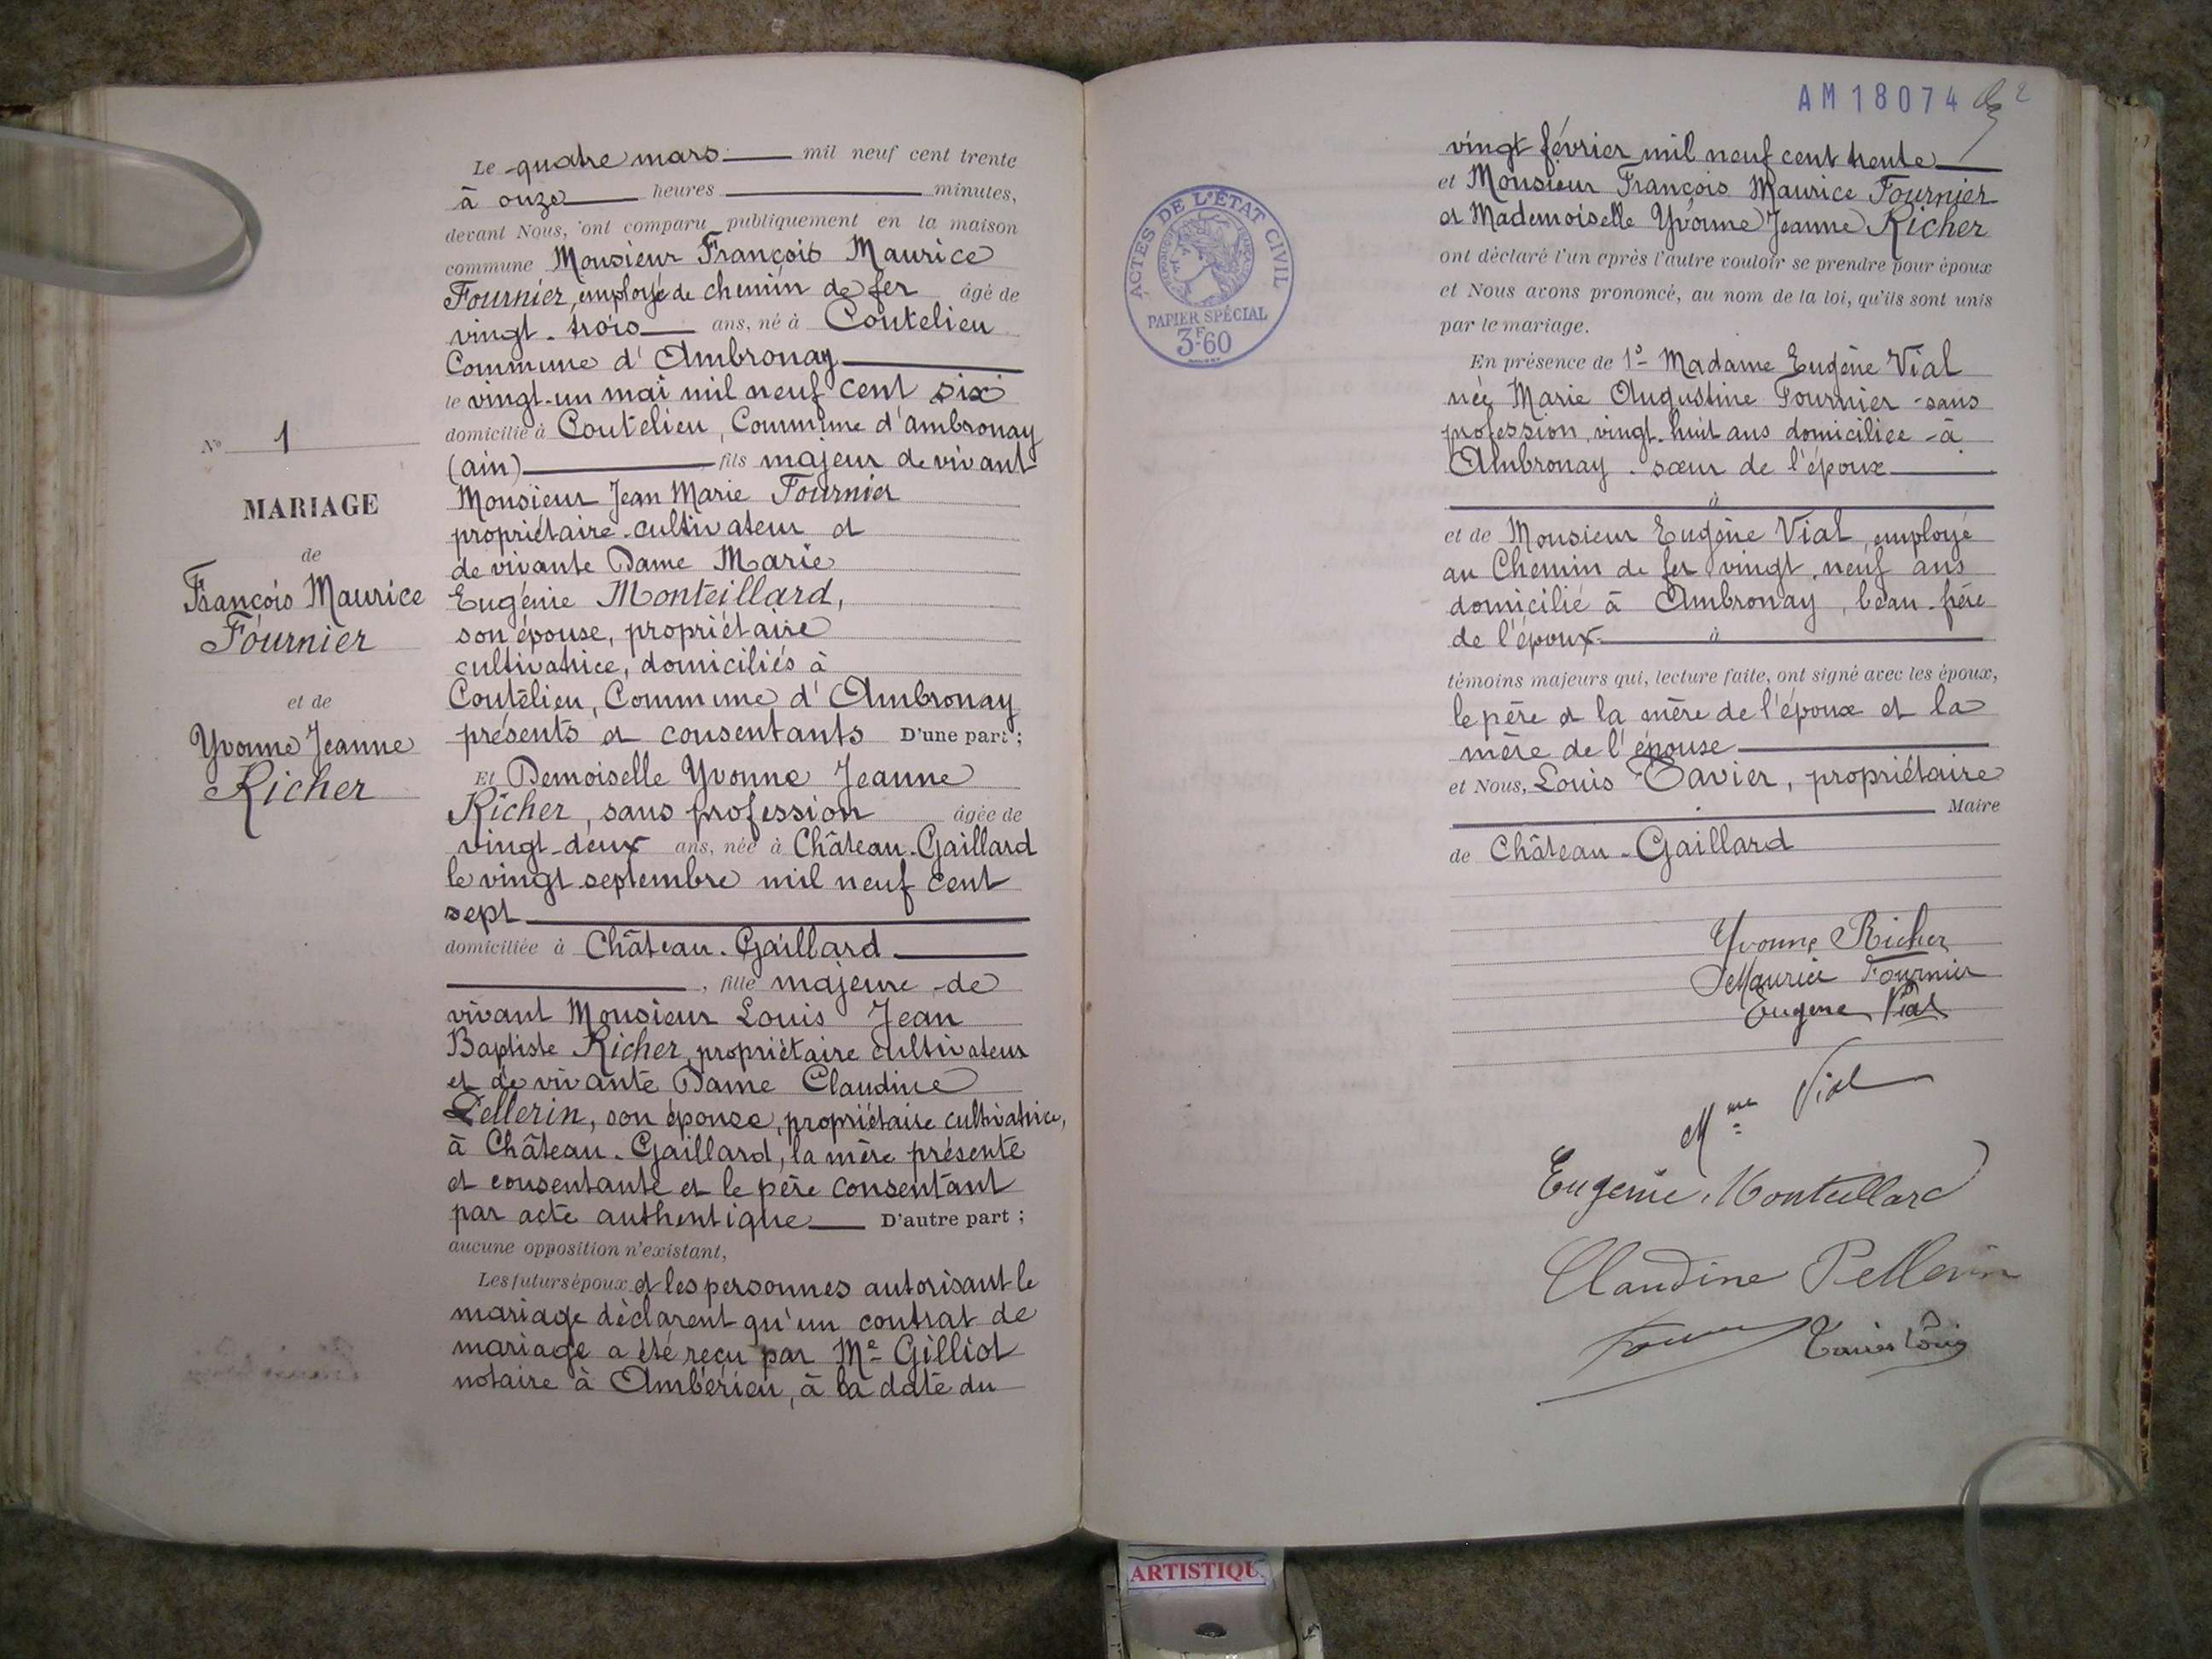 N° 1
MARIAGE
de
François Maurice
Fournier
et de
Yvonne Jeanne
Richer
Le quatre mars mil neuf cent trente
à onze heures minutes,
devant Nous, ont comparu publiquement en la maison
commune Monsieur François Maurice
Fournier, employé de chemin de fer âgé de
vingt-trois ans, né à Coutelieu
Commune d'Ambronay
le vingt-un mai mil neuf cent six
domicilié à Coutelieu, Commune d'ambronay
(ain) fils majeur de vivant
Monsieur Jean Marie Fournier
propriétaire-cultivateur et
de vivante Dame Marie
Eugénie Monteillard,
son épouse, propriétaire
cultivatrice, domiciliés à
Coutelieu, Commune d'Ambronay
présents et consentants D'une part ;
Et Demoiselle Yvonne Jeanne
Richer, sans profession âgée de
vingt-deux ans, née à Château-Gaillard
le vingt septembre mil neuf cent
sept
domiciliée à Château-Gaillard
, fille majeure de
vivant Monsieur Louis Jean
Baptiste Richer, propriétaire cultivateur
et de vivante Dame Claudine
Pellerin, son épouse, propriétaire cultivatrice,
à Château-Gaillard, la mère présente
et consentante et le père consentant
par acte authentique D'autre part ;
aucune opposition n'existant,
Les futurs époux et les personnes autorisant le
mariage déclarent qu'un contrat de
mariage a été reçu par Me Gilliot
notaire à Ambérieu, à la date du
AM18074 2
vingt février mil neuf cent trente
et Monsieur François Maurice Fournier
et Mademoiselle Yvonne Jeanne Richer
ont déclaré l'un après l'autre vouloir se prendre pour époux
et Nous avons prononcé, au nom de la loi, qu'ils sont unis
par le mariage.
ACTES DE L'ÉTAT CIVIL
PAPIER SPÉCIAL
3F60
En présence de 1° Madame Eugène Vial
née Marie Augustine Fournier sans
profession, vingt-huit ans domiciliée à
Ambronay. sœur de l'époux
à
et de Monsieur Eugène Vial, employé
au Chemin de fer vingt-neuf ans
domicilié à Ambronay, beau-frère
de l'époux à
témoins majeurs qui, lecture faite, ont signé avec les époux,
le père et la mère de l'époux et la
mère de l'épouse
et Nous, Louis Tavier, propriétaire
Maire
de Château-Gaillard
Yvonne Richer
Maurice Fournier
Eugène Vial
Mme Vial
Eugénie Monteillard
Claudine Pellerin
Tavier Louis
ARTISTIQU